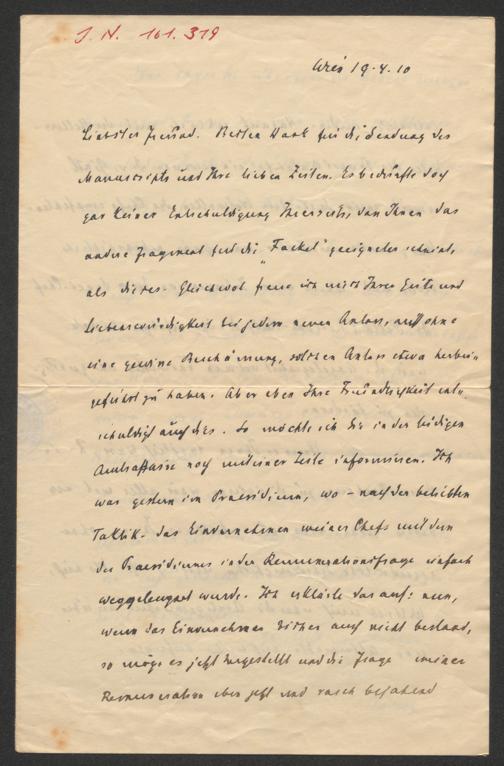 J. N. 161.319
Wien 19.4.10
Liebster Freund. Besten Dank für die Sendung des
Manuscripts und Ihre lieben Zeilen. Es bedürfte doch
gar keiner Entschuldigung Ihrerseits, dass Ihnen das
andere Fragment für die „Fackel" geeigneter scheint,
als dieses. Gleichwol freue ich mich Ihrer Güte und
Liebenswürdigkeit bei jedem neuen Anlass, nicht ohne
eine gewisse Beschämung, solchen Anlass etwa herbei-
geführt zu haben. Aber eben Ihre Freundlichkeit ent-
schuldigt auch dies. So möchte ich Sie in der leidigen
Amtsaffaire noch mit einer Zeile informieren. Ich
war gestern im Praesidium, wo – nach der beliebten
Taktik – das Einvernehmen meiner Chefs mit dem
des Praesidiums in der Remunerationsfrage einfach
weggeleugnet wurde. Ich erklärte darauf: nun,
wenn das Einvernehmen bisher auch nicht bestand,
so möge es jetzt hergestellt und die Frage meiner
Remuneration eben jetzt und rasch bejahend